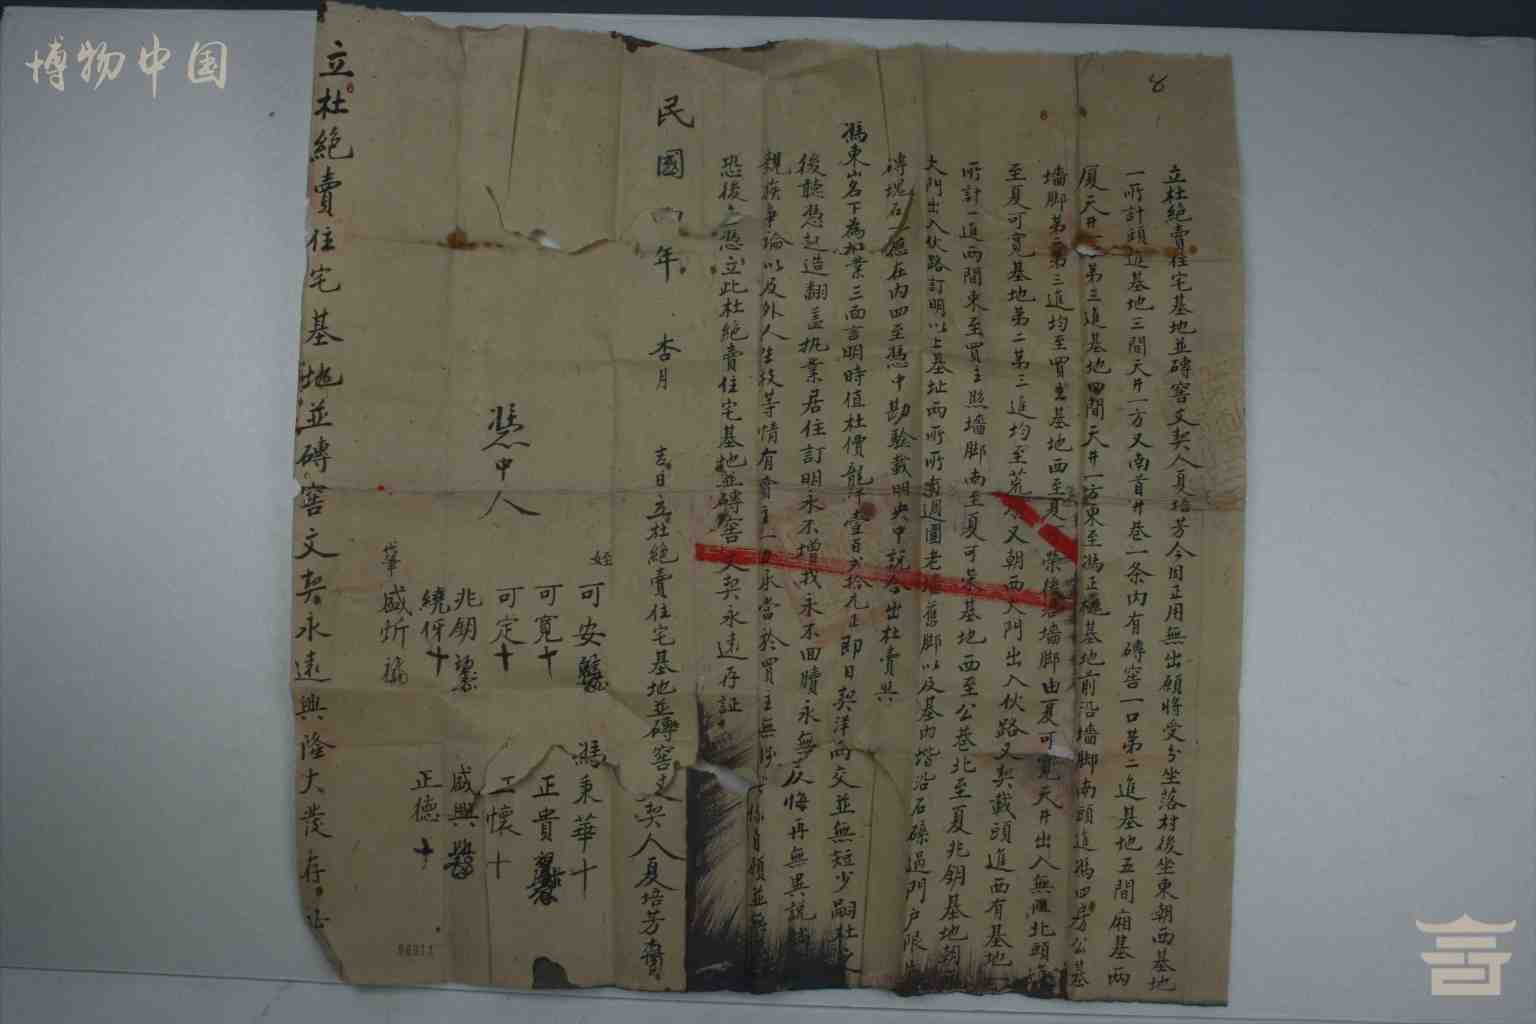 博物中国
立杜絕賣住宅基地並磚窖文契人夏培芳今因正用無出願將受分坐落村後坐東朝西基地
一所計頭進基地三間天井一方又南首井巷一条內有磚窖一口第二進基地五間廂基兩
廈天井第三進基地四間天井一方東至馮正基地前沿墻脚南頭進馮四房公基
墻脚第二第三進均至買主基地西至夏榮後墻脚由夏可寬天井出入無阻北頭
至夏可寬基地第二第三進均至荒又朝西大門出入伙路又契載頭進西有基地一
所計一進兩間東至買主照墻脚南至夏可榮基地西至公巷北至夏兆鈅基地朝
大門出入伙路訂明以上基址兩所所有週圍老墻舊脚以及基內堦沿石磉過門戶限
磚塊石一應在內四至憑中勘驗載明央中說合出杜賣與
馮東山名下為業三面言明時值杜價龍洋壹百弍拾元正即日契洋兩交並無短少嗣杜之
後聽憑起造翻蓋執業居住訂明永不增找永不回贖永無反悔再無異說
親族爭論以及外人生枝等情有賣主一力承當於買主無涉自願並無
恐後之憑立此杜絕賣住宅基地並磚窖文契永遠存証
民國四年 杏月 吉日立杜絕賣住宅基地並磚窖文契人夏培芳
姪 可安 馮秉華十
可寬十 正貴
可定十 工懷十
憑中人
兆鈅 盛興
繞伢十 正德十
盛炘
立杜絕賣住宅基地並磚窖文契永遠興隆大發存証